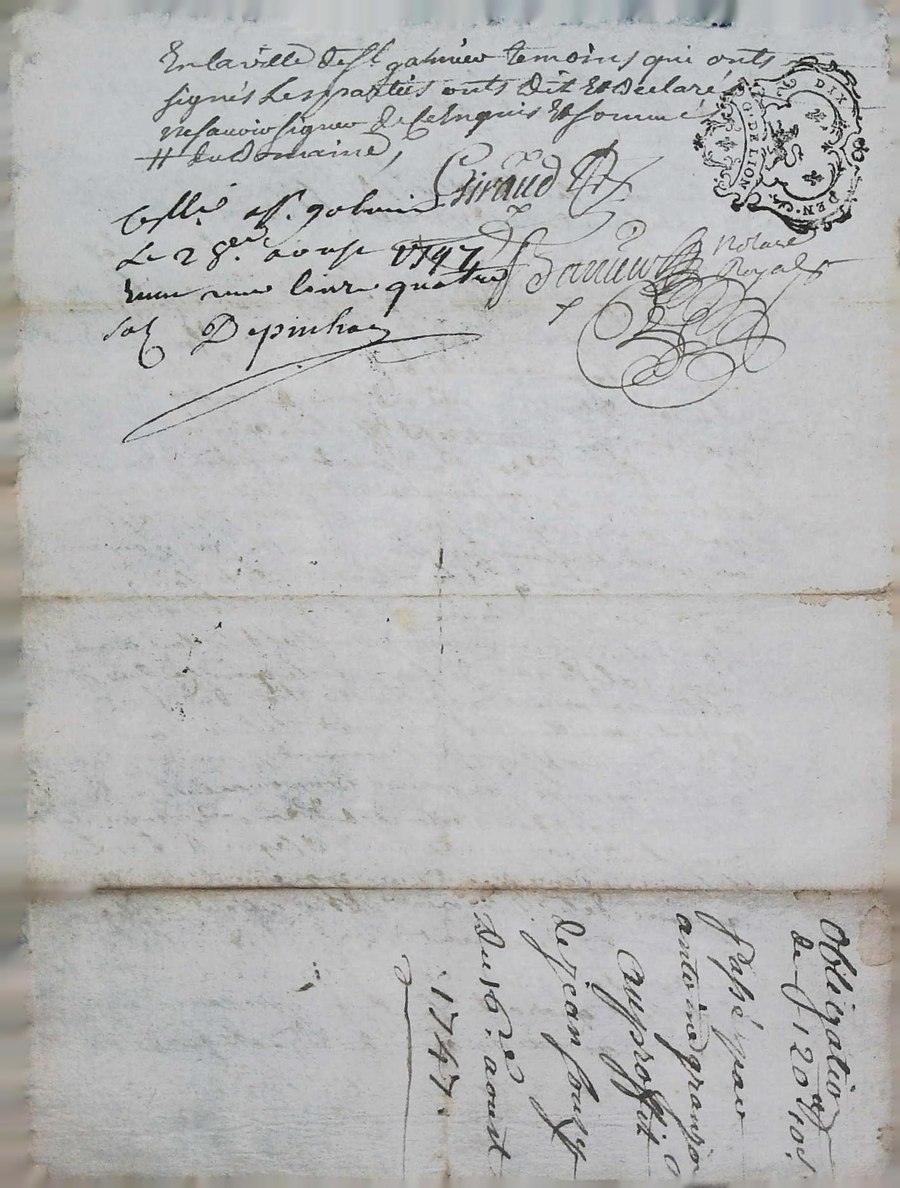 En la ville de St galmier temoins qui onts
signés Les parties onts dit et declaré
ne savoir signer de Ce Enquis et sommé
# du Domaine,
Giraud
Cssllé à St. galmier
Le 28e. aoust 1747
Reçu une livre quatre
sols Depinhac
notaire
Royal
DIX
DEN.
G. D. LION
Obligation
de 120
Passé par
antoine granjo
au proffit
de jean
Du 16e aoust
1747.